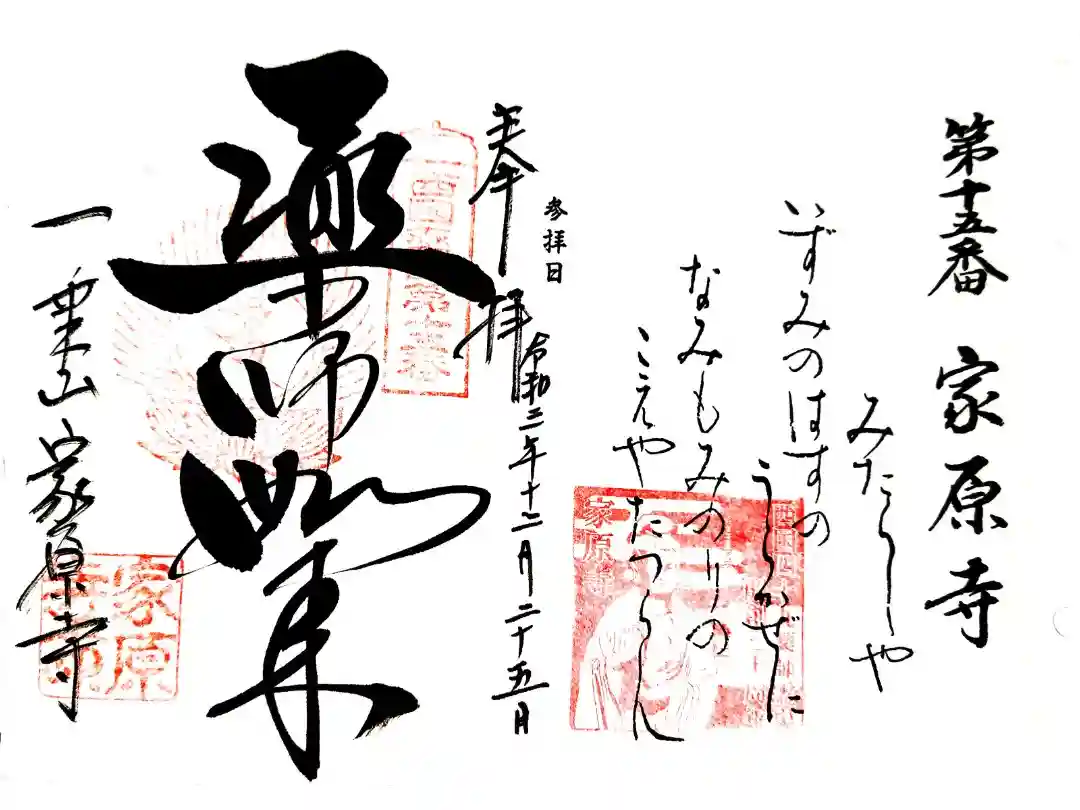 第十五番 家原寺
みたらしや
いずみのはすの
うらかぜに
なみもみのりの
こえやたつらん
家原寺
参拝日
令和三年十二月二十五日
奉拝
薬師如来
一乗山家原寺
家原